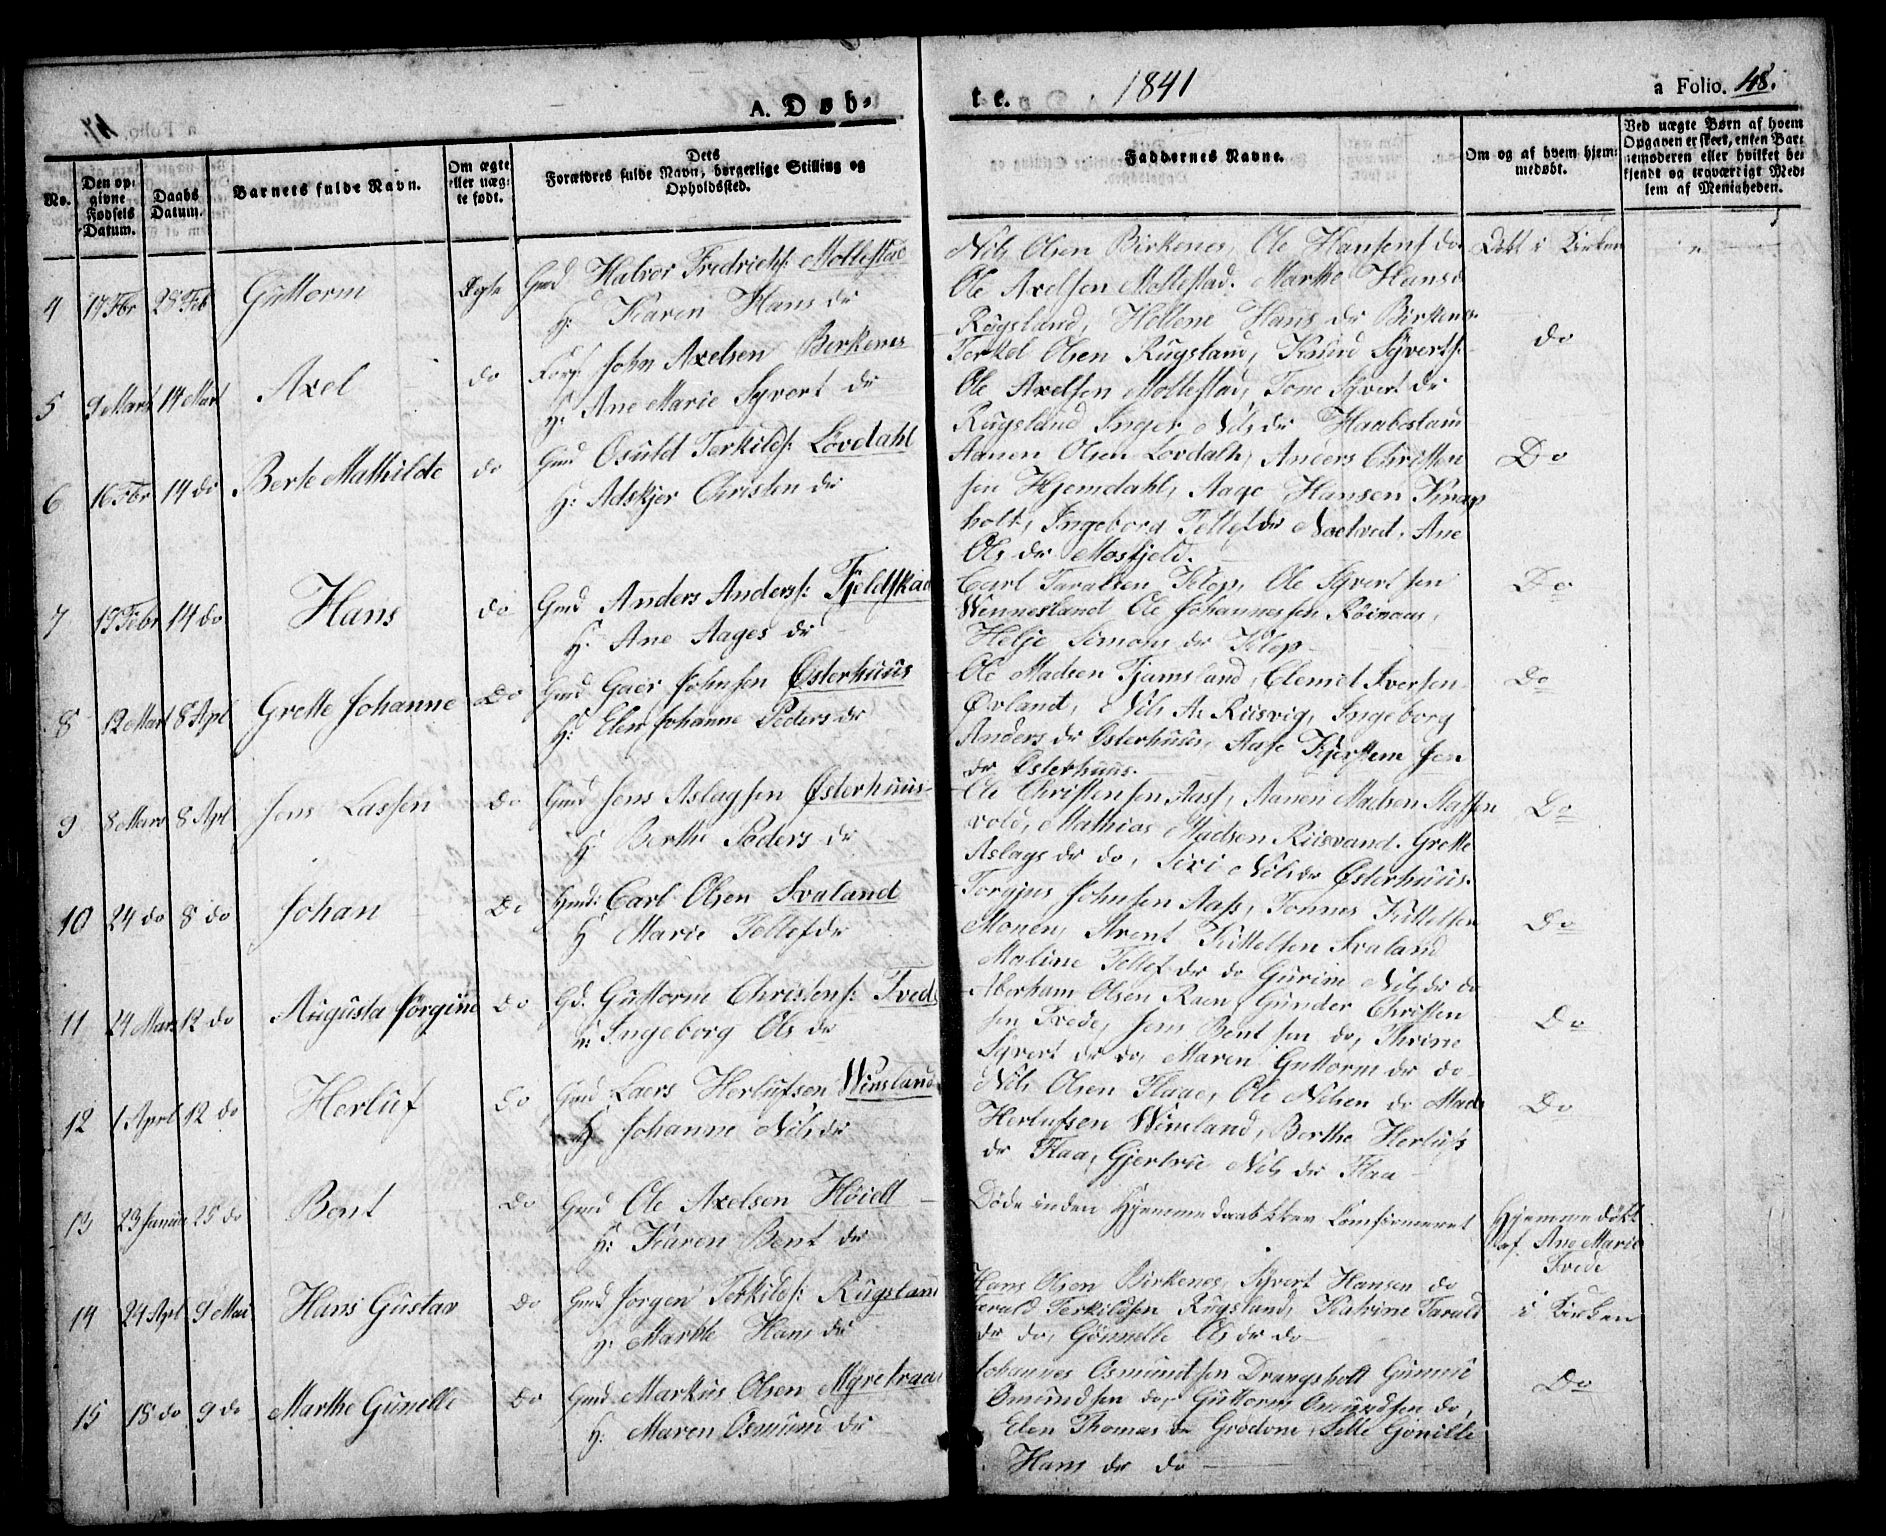 A. Døb-
te.
1841
a Folio. 48.
No.
Den op-
givne
Fødsels
Datum.
Daabs
Datum.
Barnets fulde Navn.
Om ægte
eller uæg-
te født.
Dets
Forældres fulde Navn, borgerlige Stilling og
Opholdssted.
Faddernes Navne.
Om og af hvem hjem-
medøbt.
Ved uægte Børn af hvem
Opgaven er skeet, enten Bar-
nemoderen eller hvilket be-
kjendt og troværdigt Med-
lem af Menigheden.
4 17 Fbr 28 Feb Guttorm Ægte Gmd Halvor Fredrichs: Mollestad
H: Karen Hans dr
Nils Olsen Birkenes, Ole Hansen do
Ole Axelsen Mollestad. Marthe Hans dr
Rugsland, Hellene Hans dr Birkenes
Døbt i Kirken
5 9 Mars 14 Mart Axel do Fors John Axelsen Berkenes
H: Ane Marie Syvert dr
Terkel Olsen Rugsland, Knud Syverts:
Ole Axelsen Mollestad, Tone Syvert dr
Rugsland Inger Nils dr Haabesland
do
6 16 Fbr 14 do Berte Mathilde do Gmd Osuld Terkilds: Lovdahl
H: Adskjer Christen dr
Aanen Olsen Lovdahl, Anders Christen
sen Hjemdahl, Aage Hansen Knap
holt, Ingeborg Tellef dr Noelved. Ane
Ols dr Mosfjeld.
Do
7 19 Febr 14 do Hans do Gmd Anders Anders: Fjeldskaa
H. Ane Aages dr
Carl Taralsen Klep, Ole Syvertsen
Wennesland Ole Johannessen Røinaas,
Helje Simons dr Klep
Do
8 12 Mart 8 Apl Grette Johanne Do Gmd Goer Johnsen Østerhuus
H: Elen Johanne Peders dr
Ole Madsen Tjamsland, Clemet Iversen
Øvland, Nils A: Riisvig, Ingeborg
Anders dr Østerhuus, Aase Kjerstene Jen
dr Østerhuus.
Do
9 8 Mars 8 Apl Jens Lassen Do Gmd Jens Aslagsen Østerhuus
H Berthe Peders dr
Ole Christensen Aass, Aanen Madsen
vold, Mathias Madsen Riisvand. Grette
Aslags dr do, Siri Nils dr Østerhuus.
Do
10 24 do 8 do Johan Do Gmd: Carl Olsen Svaland
H Marie Tellef dr
Torgjus Johnsen Aass, Tonnes Kittelsen
Monen, Arent Kittelsen Svaland
Maline Tellef dr do Gurine Nils dr do
Do
11 24 Mars 12 do Augusta Jørgine Do Gd. Guttorm Christens: Tvede
H: Ingeborg Ols dr
Aberham Olsen Raen, Gunder Christen
sen Tvede, Jens Bentsen do, Thrine
Syvert dr do, Maren Guttorm dr do
Do
12 1 Aprl 12 do Herluf Do Gmd Laers Herlufsen Wimsland
H Johanne Nils dr
Nils Olsen Flaae, Ole Nilsen do Mads
Herlufsen Wimland, Berthe Herlufs
dr Flaa, Gjertrue Nils dr Flaa
Do
13 23 Januar 25 do Bent Do Gmd Ole Axelsen Høiett
H: Karen Bent dr
Døde inden Hjemmedaab blev Comfirmeret
Hjemmedøbt
af. Ane Marie
Tvede
14 24 Apl 9 Mai Hans Gustav Do Gmd Jorgen Terkilds: Rugsland
H: Marthe Hans dr
Hans Olsen Birkenes, Syvert Hansen do
Terkildsen Rugsland, Katrine Tarald
dr do, Gonnelle Ols dr do
i Kirken
15 18 do 9 do Marthe Gunille Do Gmd Markus Olsen Myrekraae
H: Maren Osmund dr
Johannes Osmundsen Drangsholt
Omundsen do, Guttorm Omundsen do,
Elen Thomas dr Grødum, Sille Gonille
Hans dr do
Do